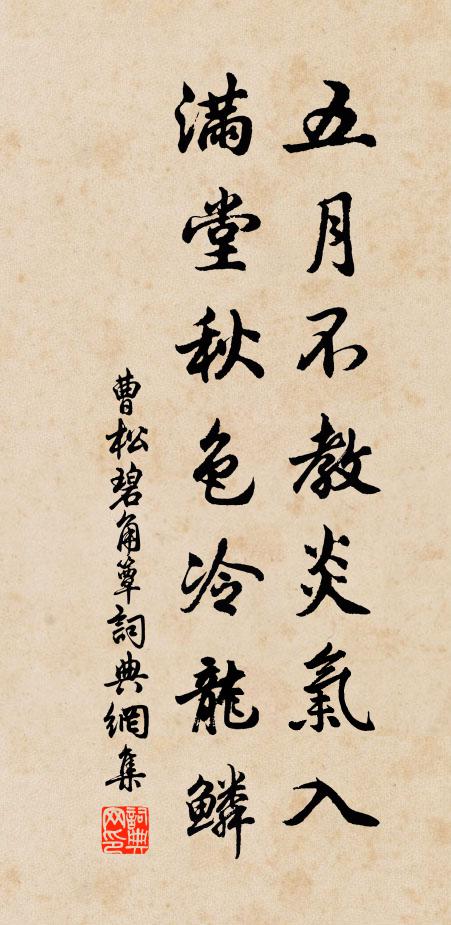 五月不教炎氣入
滿堂秋色冷龍鱗
曹松碧角簟詞典網集
詞典网印